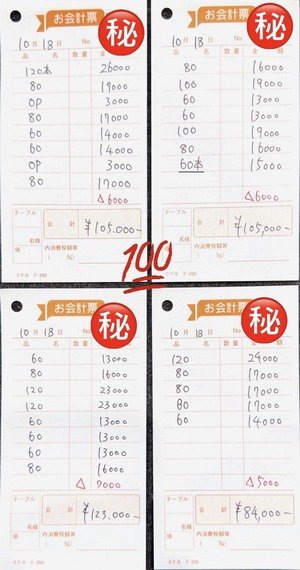 お会計票
㊙
10月18日 No.
品 名 数 量 金 額
120本 26000
80 17000
OP 3000
80 17000
60 14000
60 14000
OP 3000
80 17000
△6000
テーブル
合 計 ¥105.000-
名様
係
内消費税額等
( %)
コクヨ テ-250
お会計票
㊙
10月18日 No.
品 名 数 量 金 額
80 16000
100 19000
60 13000
60 13000
100 19000
80 16000
60本 15000
△6000
テーブル
合 計 ¥105,000-
名様
係
内消費税額等
( %)
コクヨ テ-250
100
お会計票
㊙
10月18日 No.
品 名 数 量 金 額
60 13000
80 16000
120 23000
120 23000
60 13000
60 13000
60 13000
80 16000
△ 7000
テーブル
合 計 ¥123.000-
名様
係
内消費税額等
( %)
コクヨ テ-250
お会計票
㊙
10月18日 No.
品 名 数 量 金 額
120 24000
80 17000
80 17000
80 17000
60 14000
△5000
テーブル
合 計 ¥84,000-
名様
係
内消費税額等
( %)
コクヨ テ-250